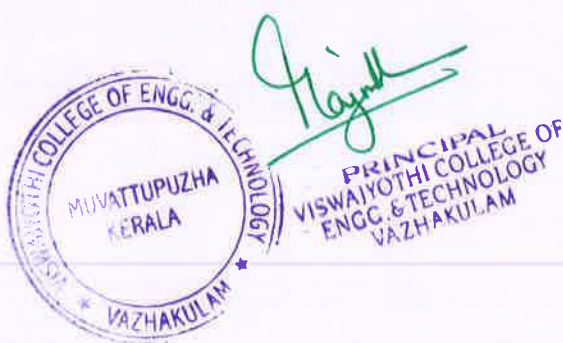 VISWAJYOTHI COLLEGE OF ENGG. & TECHNOLOGY
★ VAZHAKULAM ★
MUVATTUPUZHA
KERALA
PRINCIPAL
VISWAJYOTHI COLLEGE OF
ENGG. & TECHNOLOGY
VAZHAKULAM